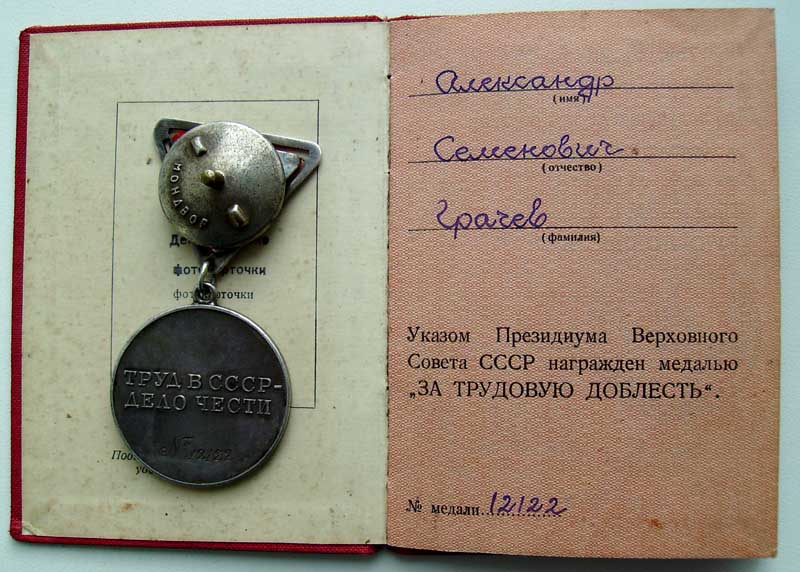 МОНДВОР
фото
точки
фото
точки
ТРУД В СССР-
ДЕЛО ЧЕСТИ
№ 12122
Александр
(имя)
Семенович
(отчество)
Грачев
(фамилия)
Указом Президиума Верховного
Совета СССР награжден медалью
„ЗА ТРУДОВУЮ ДОБЛЕСТЬ“.
№ медали 12122